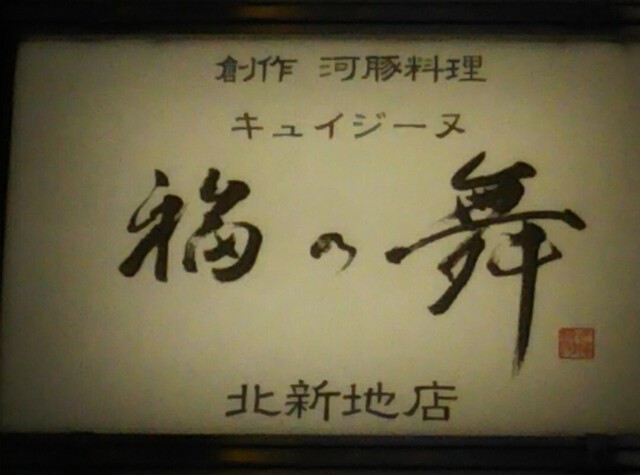 創作 河豚料理
キュイジーヌ
福の舞
北新地店